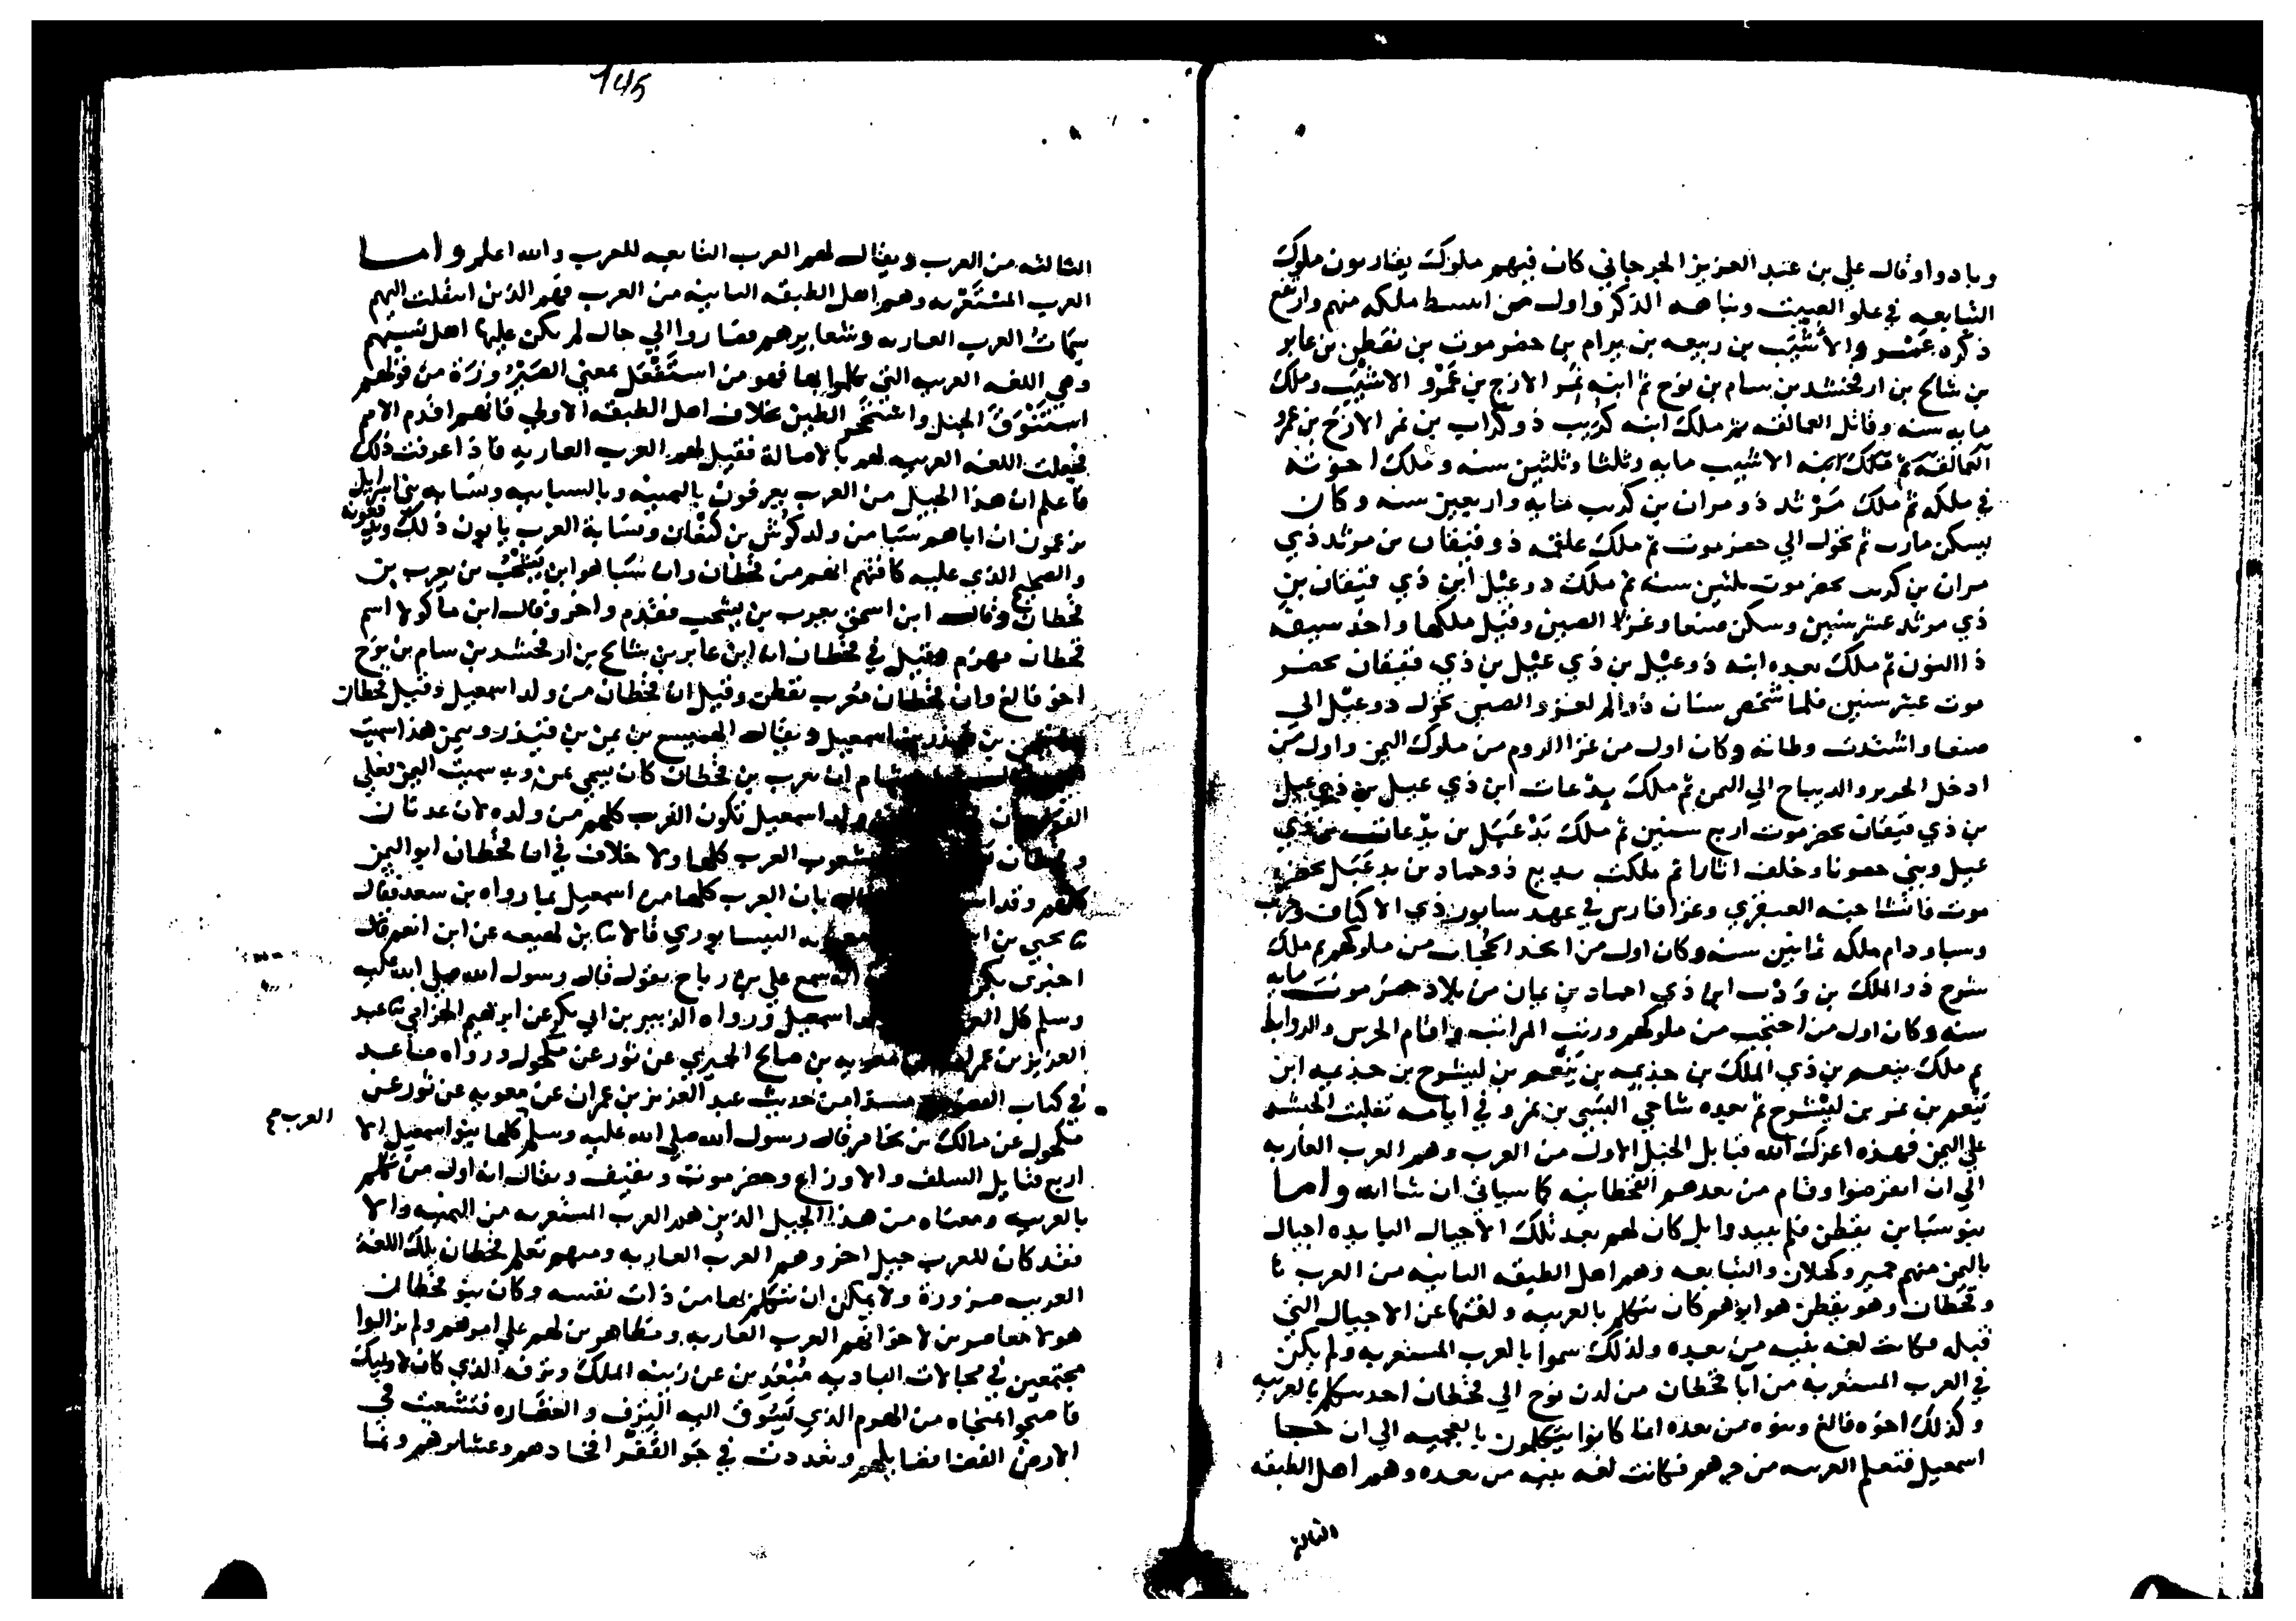 وبادوا وقال علي بن عبد العزيز الجرجاني كان فيهم ملوك يقاربون ملوك
التبابعه في علو الصيت ونباهه الذكر واول من انبسط ملكه منهم وارتفع
ذكره عمرو الاشنب بن ربيعه بن يرام بن حضرموت بن نقطن بن عابر
بن شالخ بن ارفخشد بن سام بن نوح ثم ابنه نمر الازج بن عمرو الاشنب وملك
مايه سنه وقاتل العمالقه ثم ملك ابنه كريب ذو كراب بن نمر الازج بن عمرو
ثم ملك ابنه الاشيب مايه وثلثا وثلثين سنه وملك اخوته
في ملكه ثم ملك مرثد ذو مران بن كريب مايه واربعين سنه وكان
يسكن مارب ثم تحول الي حضرموت ثم ملك علقمه ذو قيقان بن مرثد ذي
مران بن كرب بحضرموت ثلثين سنه ثم ملك ذو عيل ابن ذي قيقان بن
ذي مرثد عشر سنين وسكن صنعا وغزا الصين وقتل ملكها واخذ سيفه
ذا النون ثم ملك بعده ابنه ذو عيل بن ذي عيل بن ذي قيقان بحضر
موت عشر سنين فلما شخص سنان ذو الم لغزو الصين تحول ذو عيل الي
صنعا واشتدت وطاته وكان اول من غزا الروم من ملوك اليمن واول من
ادخل الحرير والديباج الي اليمن ثم ملك بدعات ابن ذي عيل بن ذي عيل
بن ذي قيقان بحضرموت اربع سنين ثم ملك بدعيل بن بدعات بن ذي
عيل وبني حصونا وخلف اثارا ثم ملك بديع ذو حماد بن بدعيل بحضر
موت فانشا حبنه العسفري وغزا فارس في عهد سابور ذي الاكتاف وخرب
وسبا ودام ملكه ثمانين سنه وكان اول من اتخذ الحجاب من ملوكهم ثم ملك
يشوح ذو الملك بن ودب ابن ذي احماد بن عيان من بلاد حضرموت مايه
سنه وكان اول من احتجب من ملوكهم ورتب المراتب واقام الحرس والروابط
ثم ملك ينعم بن ذي الملك بن جذيمه بن ينعم بن ليشوح بن جذيمه ابن
ينعم بن نمر بن ليشوح ثم بعده شاجي السبى بن نمر وفي ايامه تغلبت الحبشه
علي اليمن فهذه اعزك الله قبايل الجيل الاول من العرب وهم العرب العاربه
الي ان انقرضوا وقام من بعدهم القحطانيه كما سياتي ان شا الله واما
بنو سبا بن يقطن فلم يبيدوا بل كان لهم بعد تلك الاجيال البايده اجيال
باليمن منهم حمير وكهلان والتبابعه وهم اهل الطبقه الثانيه من العرب
وقحطان وهو يقطن هو ابوهم كان يتكلم بالعربيه ولقنها عن الاجيال التي
قبله وكانت لغه بنيه من بعده ولذلك سموا بالعرب المستعربه ولم يكن
في العرب المستعربه من ابا قحطان من لدن نوح الي قحطان احد يتكلم بالعربيه
وكذلك اخوه فالغ وبنوه من بعده انما كانوا يتكلمون بالعجميه الي ان جا
اسمعيل فتعلم العربيه من جرهم فكانت لغه بنيه من بعده وهم اهل الطبقه
الثالثه
145
الثالثه من العرب ويقال لهم العرب التابعه للعرب والله اعلم واما
العرب المستعربه وهم اهل الطبقه الثانيه من العرب فهم الذين انتقلت اليهم
سمات العرب العاربه وشعايرهم فصاروا الي حال لم يكن عليها اهل نسبهم
وهي اللغه العربيه التي تكلموا بها فهو من استفعل بمعني الصيروره من قولهم
استنوق الجمل واستحجر الطين بخلاف اهل الطبقه الاولي فانهم اقدم الامم
فجعلت اللغه العربيه لهم بالاصالة فقيل لهم العرب العاربه فاذا عرفت ذلك
فاعلم ان هذا الجيل من العرب يعرفون باليمنيه وبالسبائيه ونسابه بني اسرايل
يزعمون ان اباهم سبا من ولد كوش بن كنعان ونسابة العرب يابون ذلك ويدفعونه
والصحيح الذي عليه كافتهم انهم من قحطان وان سبا هو ابن يشجب بن يعرب بن
قحطان وقال ابن اسحق يعرب بن يشجب فقدم واخر وقال ابن ماكولا اسم
قحطان مهزم وقيل في قحطان انه ابن عابر بن شالخ بن ارفخشد بن سام بن نوح
اخو فالغ وان قحطان معرب يقطن وقيل ان قحطان من ولد اسمعيل وقيل قحطان
بن اسمعيل ويقال الهميسع بن يمن بن قيذر ويمن هذا سميت
هشام ان يعرب بن قحطان كان يسمي يمن وبه سميت اليمن فعلي
القول بان ولد اسمعيل تكون العرب كلهم من ولده لان عدنان
وقحطان شعوب العرب كلها ولا خلاف في ان قحطان ابو اليمن
كلهم وقد بان العرب كلها من اسمعيل بما رواه بن سعد فقال
ثنا يحيي بن النيسابوري قالا ثنا بن لهيعه عن ابن انعم قال
اخبرني بكر انه سمع علي بن رباح يقول قال رسول الله صلي الله عليه
وسلم كل العرب اسمعيل ورواه الزبير بن ابي بكر عن ابرهيم الحزامي ثنا عبد
العزيز بن عمران معويه بن صالح الحميري عن ثور عن مكحول ورواه صاعد
في كتاب مسندا من حديث عبد العزيز بن عمران عن معويه عن ثور عن
مكحول عن مالك بن يخامر قال رسول الله صلي الله عليه وسلم كلها بنو اسمعيل الا
العرب
اربع قبايل السلف والاوزاع وحضرموت وثقيف ويقال انه اول من تكلم
بالعربيه ومعناه من هذا الجيل الذين هم العرب المستعربه من اليمنيه والا
فقد كان للعرب جيل اخر وهم العرب العاربه ومنهم تعلم قحطان تلك اللغة
العربيه ضرورة ولا يمكن ان يتكلم بها من ذات نفسه وكان بنو قحطان
هولا معاصرين لاخوانهم العرب العاربه ومظاهرين لهم علي امورهم ولم يزالوا
مجتمعين في مجالات الباديه مبعدين عن زينه الملك وترفه الذي كان لاوليك
فاصبحوا بمنجاه من الهرم الذي يسوق اليه الترف والغضاره فتشعبت في
الارض الفضا فصايلهم وتعددت في جو القفر افخاذهم وعشايرهم ونما